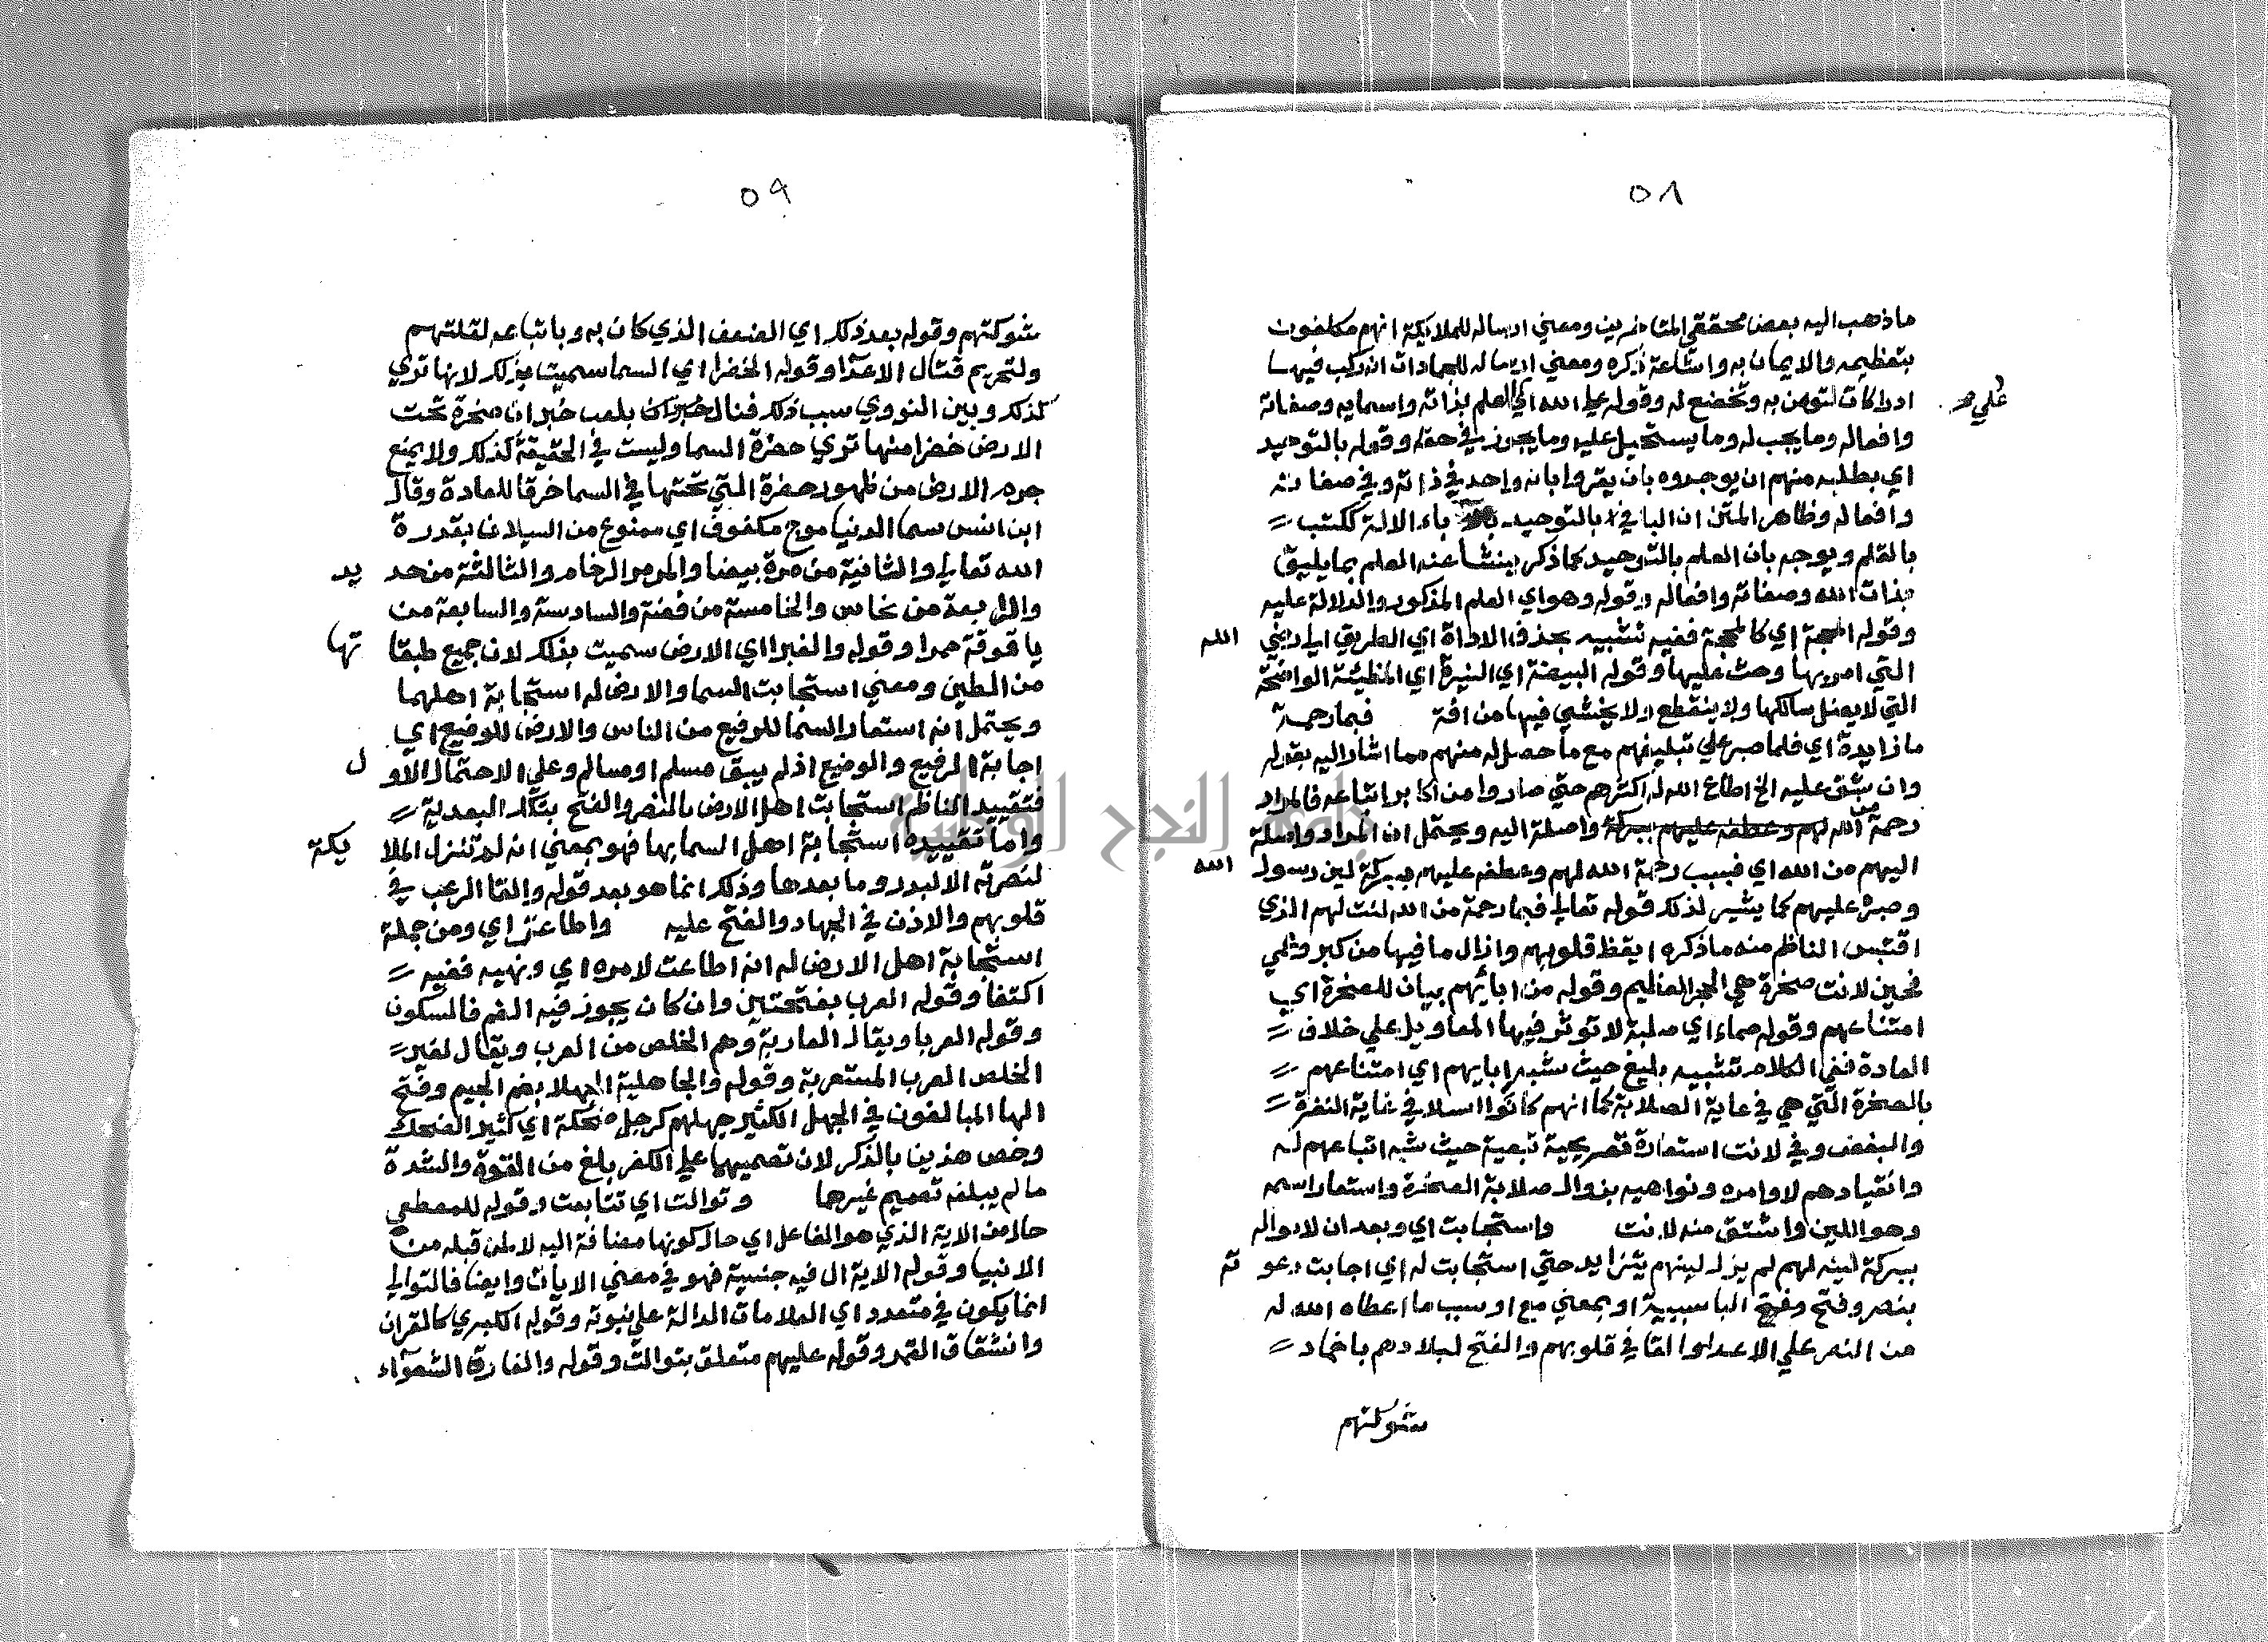 ٥٨
ما ذهب اليه بعض محققي المتاخرين ومعني ارساله للملايكة انهم مكلفون
بتعظيمه والايمان به واشاعة ذكره ومعني ارساله للجمادات انه ركب فيها
ادراكات لتومن به وتخضع له وقوله علي الله اي العلم بذاته واسمايه وصفاته
علي
وافعاله وما يجب له وما يستحيل عليه وما يجوز في حقه وقوله بالتوحيد
اي بطلبه منهم ان يوحدوه بان يقروا بانه واحد في ذاته وفي صفاته
وافعاله وظاهر المتن ان الباء في بالتوحيد باء الالة ككتب
بالقلم ويوجه بان العلم بالتوحيد كما ذكر ينشأ عنه العلم بما يليق
بذات الله وصفاته وافعاله وقوله وهو اي العلم المذكور والدلالة عليه
وقوله المحجة اي كالمحجة ففيه تشبيه بحذف الاداة اي الطريق الي دين الله
التي امر بها وحث عليها وقوله البيضة اي النيرة اي المظيئة الواضحة
التي لا يضل سالكها ولا ينقطع ولا يخشي فيها من افة فبما رحمة
ما زايدة اي فلما صبر علي تبليغهم مع ما حصل له منهم مما اشار اليه بقوله
وان شق عليه الخ اطاع الله له اكثرهم حتي صاروا من اكابر اتباعه فالمراد
رحمة من الله لهم وعطفه عليهم ببركة واصلة اليه ويحتمل ان المراد واصلة
اليهم من الله اي فبسبب رحمة الله لهم وعطفه عليهم ببركة لين رسول الله
وصبره عليهم كما يشير لذلك قوله تعالي فبما رحمة من الله لنت لهم الذي
اقتبس الناظم منه ما ذكره ايقظ قلوبهم وازال ما فيها من كبر
فحين لانت صخرة هي الحجر العظيم وقوله من ابائهم بيان للصخرة اي
امتناعهم وقوله صماء اي صلبة لا توثر فيها المعاويل علي خلاف
العادة ففي الكلام تشبيه بليغ حيث شبه ابايهم اي امتناعهم
بالصخرة التي هي في غاية الصلابة كما انهم كانوا اسلا في غاية النفرة
والبغض وفي لانت استعارة تصريحية تبعية حيث شبه اتباعهم له
وانقيادهم لاوامره ونواهيه بزوال صلابة الصخرة واستعار اسمه
وهو اللين واشتق منه لانت واستجابت اي وبعد ان لانوا له
ببركة لينه لهم لم يزل لينهم يتزايد حتي استجابت له اي اجابت دعوته
بنصر وفتح وفتح الباء سببية او بمعني مع او سبب ما اعطاه الله له
من النصر علي الاعدا والقا في قلوبهم والفتح لبلادهم باخماد
شوكتهم
٥٩
شوكتهم وقوله بعد ذلك اي الضعف الذي كان به وباتباعه لقلتهم
ولتحريم قتال الاعدا وقوله الخضرا اي السما سميت بذلك لانها تري
كذلك وبين النووي سبب ذلك فقال بلغب خبر ان صخرة تحت
الارض خضرا منها تري خضرة السما وليست في الحقيقة كذلك ولا يمنع
جرم الارض من ظهور خضرة التي تحتها في السما خرقا للعادة وقال
ابن انس سما الدنيا موج مكفوف اي ممنوع من السيلان بقدرة
الله تعالي والثانية من مرة بيضا والمرمر الرخام والثالثة من حديد
والرابعة من نحاس والخامسة من فضة والسادسة والسابعة من
ياقوتة حمرا وقوله والغبرا اي الارض سميت بذلك لان جميع طبقاتها
من الطين ومعني استجابت السما والارض له استجابة اهلهما
ويحتمل انه استعار السما للرفيع من الناس والارض للوضيع اي
اجابة الرفيع والوضيع اذ لم يبق مسلم او مسالم وعلي الاحتمال الاول
فتقييد الناظم استجابت اهل الارض بالنصر والفتح بتلك البعدية
واما تقييده استجابة اهل السما بها فهو بمعني انه لم تنزل الملايكة
لنصرته الا لبدر وما بعدها وذلك انما هو بعد قوله والقا الرعب في
قلوبهم والاذن في الجهاد والفتح عليه واطاعت اي ومن جملة
استجابة اهل الارض له انه اطاعت لامره اي ونهيه ففيه
اكتفا وقوله العرب بفتحتين وان كان يجوز فيه الضم فالسكون
وقوله العربا ويقال العاربة وهم الخلص من العرب ويقال لغير
الخلص العرب المستعربة وقوله والجاهلية الجهلا بضم الجيم وفتح
الها المبالغون في الجهل الكثير جهلهم كرجل ضحكة اي كثير الضحك
وخص هذين بالذكر لان تصميهما علي الكفر بلغ من القوة والشدة
ما لم يبلغه تصميم غيرها وتوالت اي تتابعت وقوله للمصطفي
حال من الاية الذي هو الفاعل اي حال كونها مضافة اليه لا لمن قبله من
الانبيا وقوله الاية ال فيه جنسية فهو في معني الايات وايضا فالتوالي
انما يكون في متعدد اي العلامات الدالة علي نبوته وقوله الكبري كالقران
وانشقاق القمر وقوله عليهم متعلق بتوالت وقوله والغارة الشعواء
جامعة النجاح الوطنية